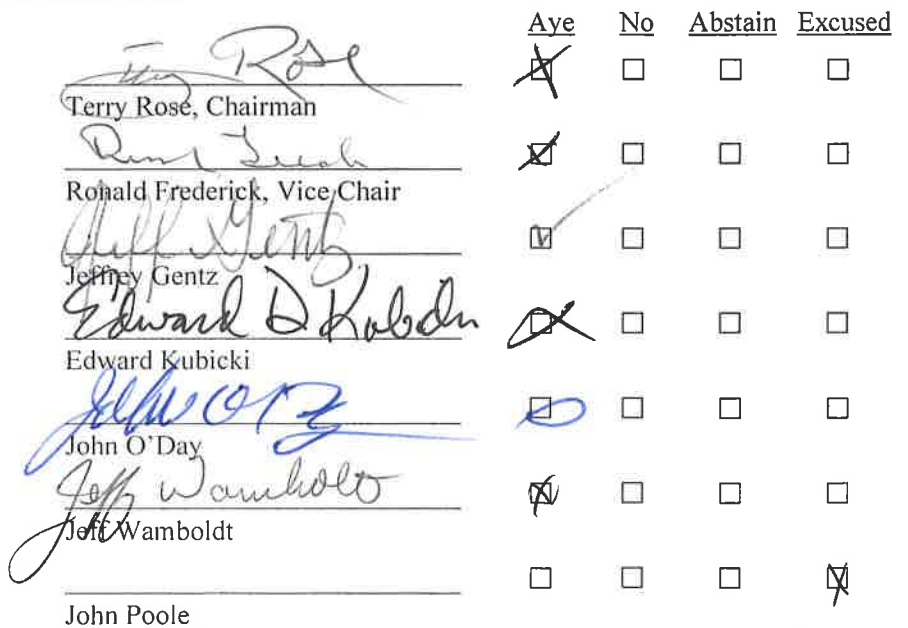 Aye No Abstain Excused
Terry Rose
Terry Rose, Chairman
Ronald Frederick, Vice Chair
Jeff Gentz
Jeffrey Gentz
Edward D. Kubicki
Edward Kubicki
John O'Day
Jeff Wamboldt
Jeff Wamboldt
John Poole